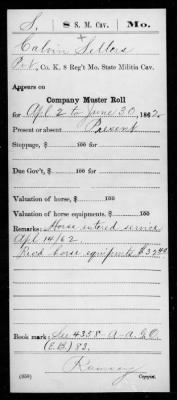 S. 8 S. M. Cav. Mo.
Calvin Sellors
Pvt, Co. K, 8 Reg't Mo. State Militia Cav.
Appears on
Company Muster Roll
for Apl 2 to June 30, 1862.
Present or absent Present
Stoppage, $ 100 for
Due Gov't, $ 100 for
Valuation of horse, $ 100
Valuation of horse equipments, $ 100
Remarks: Horse entered service
Apl 14/62
Recd horse equipments $32
Book mark: See 4358-A-A.G.O.
(E.B.) 82.
Ramsey
(859) Copyist.